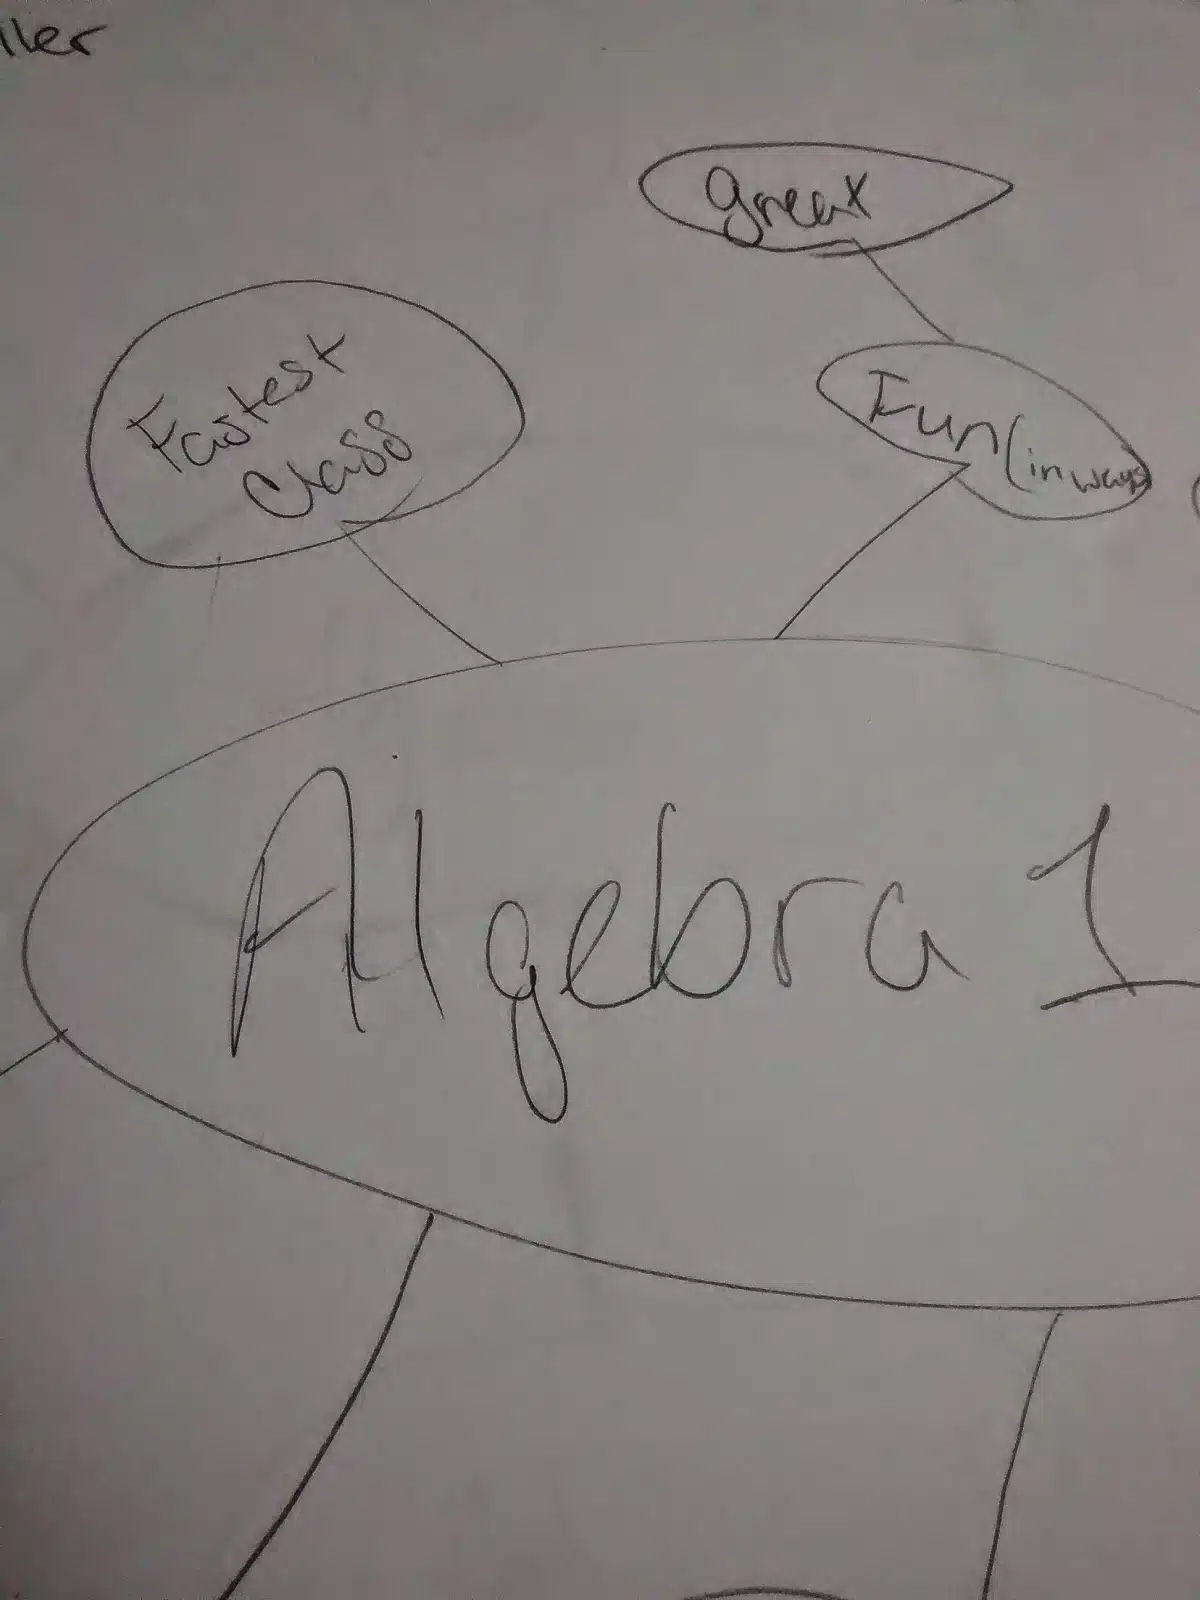 great
Fastest
Class
Fun (in ways)
Algebra 1